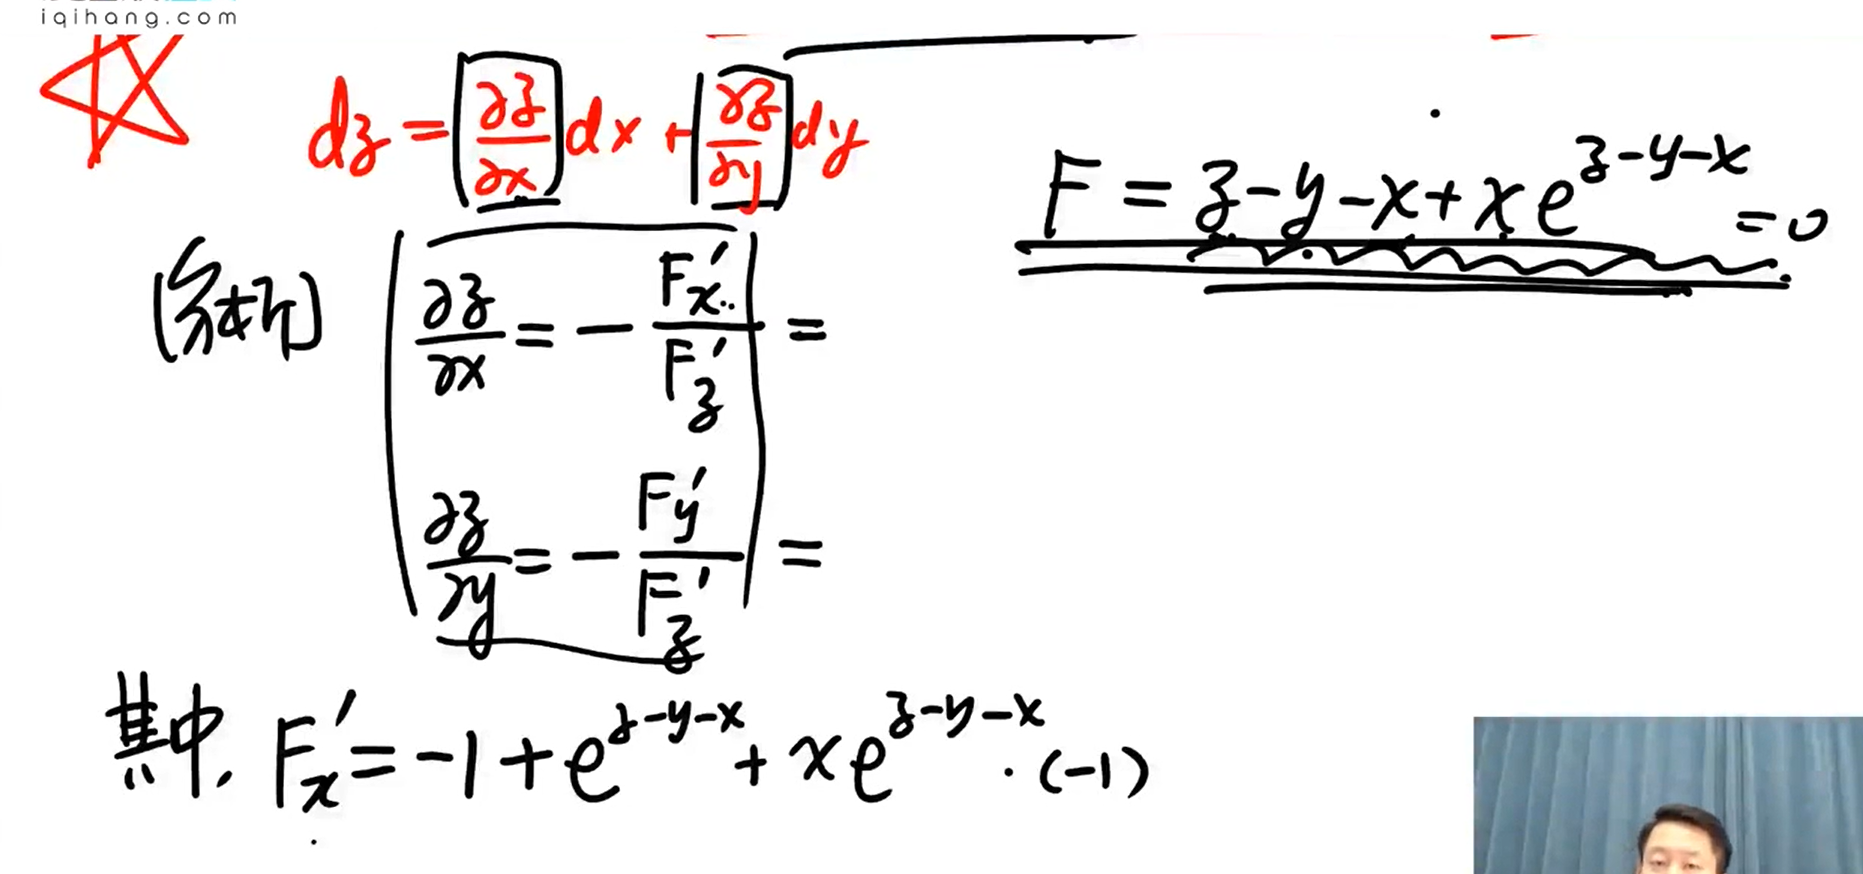 iqihang.com
dz = ∂z/∂x dx + ∂z/∂y dy
F = z-y-x+xe^{z-y-x} = 0
∂z/∂x = - F'x/F'z =
∂z/∂y = - F'y/F'z =
其中, F'x = -1 + e^{z-y-x} + xe^{z-y-x} · (-1)